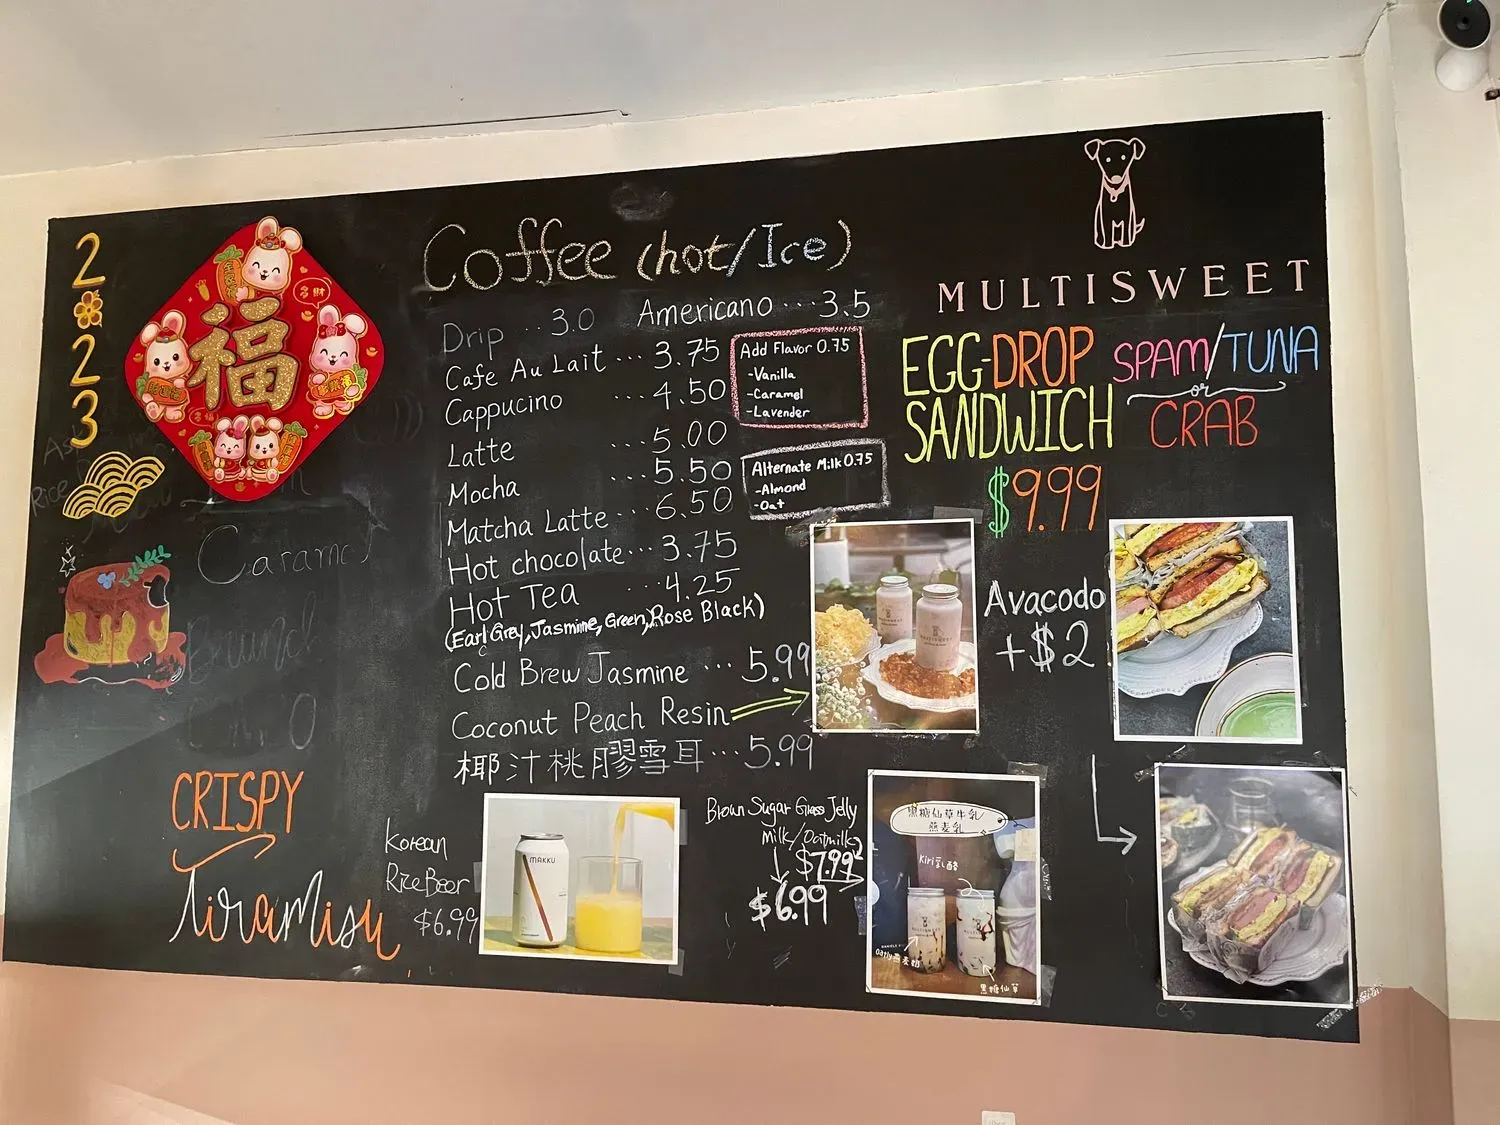 2
2
3
福
Caramel
CRISPY
Tiramisu
Coffee (hot/Ice)
Drip ·· 3.0
Americano ··· 3.5
Cafe Au Lait ··· 3.75
Cappucino ··· 4.50
Latte ··· 5.00
Mocha ··· 5.50
Matcha Latte ··· 6.50
Hot chocolate ··· 3.75
Hot Tea ·· 4.25
(Earl Grey, Jasmine, Green, Rose Black)
Cold Brew Jasmine ··· 5.99
Coconut Peach Resin
椰汁桃膠雪耳 ··· 5.99
Add Flavor 0.75
-Vanilla
-Caramel
-Lavender
Alternate Milk 0.75
-Almond
-Oat
Korean
Rice Beer
$6.99
MAKKU
Brown Sugar Grass Jelly
Milk/Oatmilk
$7.99
$6.99
黑糖仙草牛乳/
燕麦乳
Kiri乳酪
MULTISWEET
MULTISWEET
Oatly燕麦奶
黑糖仙草
MULTISWEET
EGG-DROP
SANDWICH
$9.99
SPAM/TUNA
or
CRAB
MULTISWEET
Avacodo
+$2